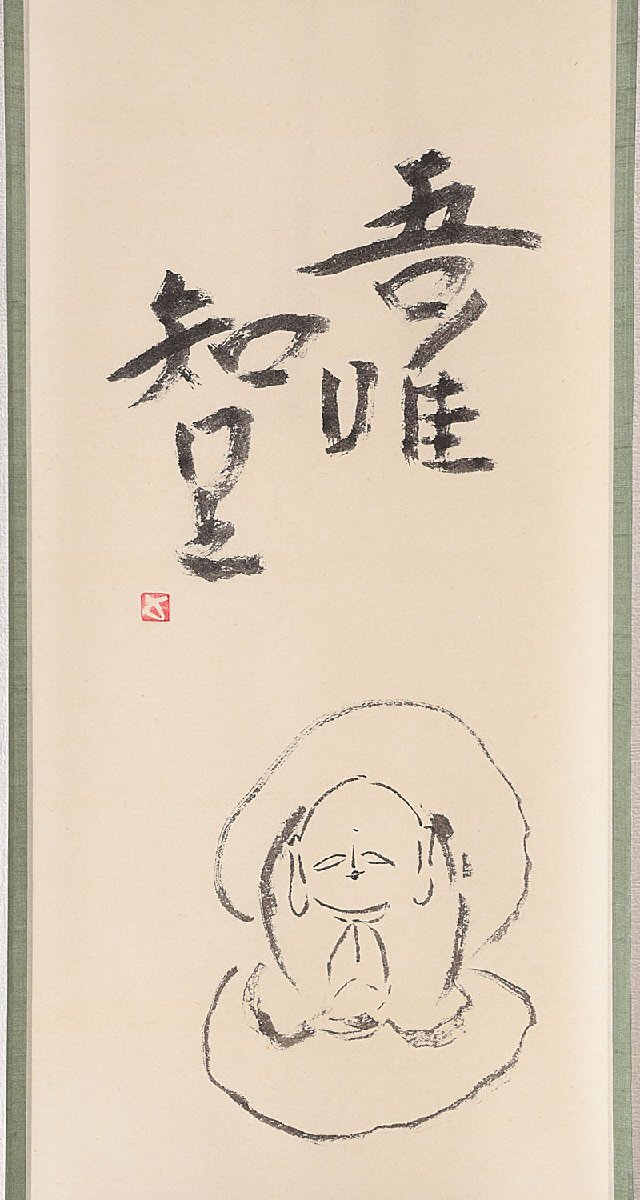 吾唯
知足